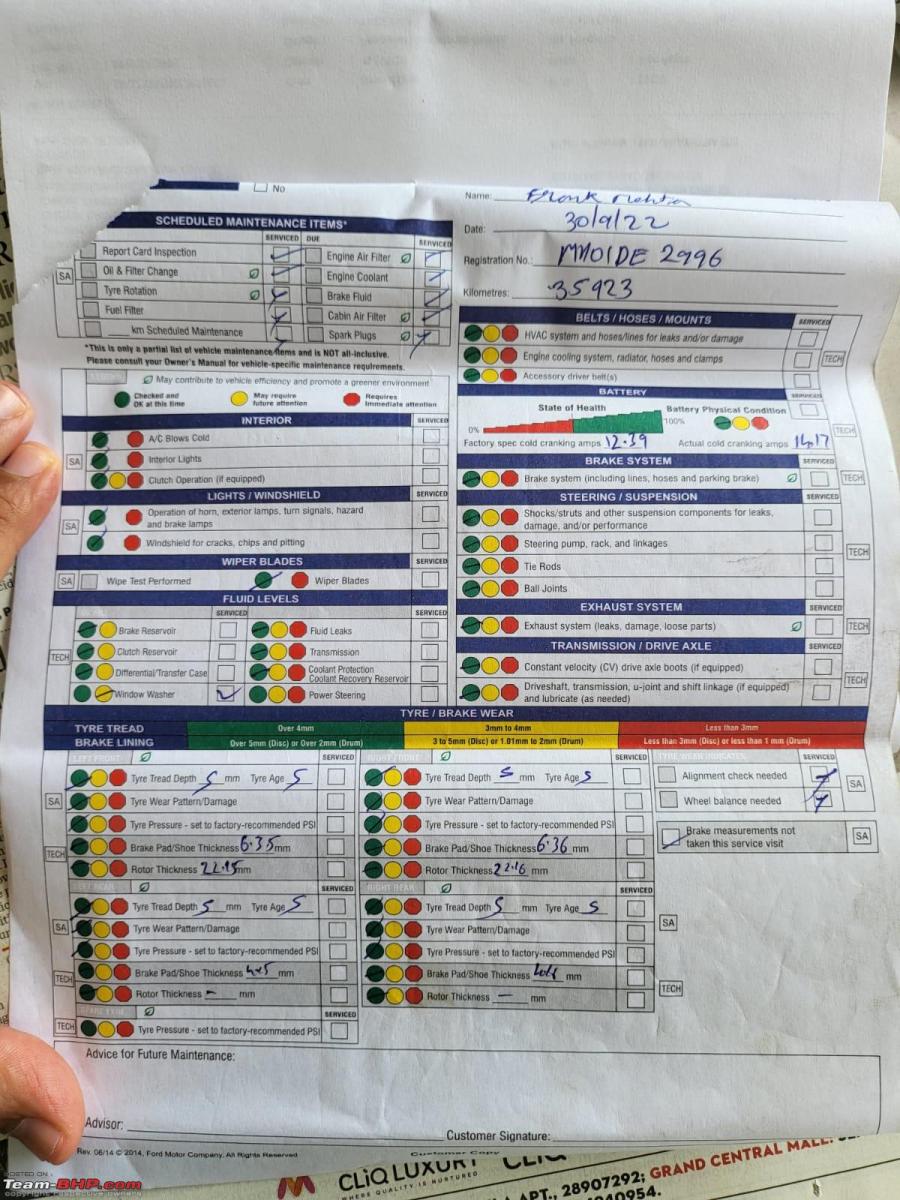 No
Name:
Date: 30/9/22
Registration No.: MH01DE 2996
Kilometres: 35923
SCHEDULED MAINTENANCE ITEMS*
SERVICED DUE SERVICED
Report Card Inspection Engine Air Filter
SA Oil & Filter Change Engine Coolant
Tyre Rotation Brake Fluid
Fuel Filter Cabin Air Filter
____ km Scheduled Maintenance Spark Plugs
*This is only a partial list of vehicle maintenance items and is NOT all-inclusive.
Please consult your Owner's Manual for vehicle-specific maintenance requirements.
May contribute to vehicle efficiency and promote a greener environment
Checked and OK at this time
May require future attention
Requires Immediate attention
INTERIOR SERVICED
A/C Blows Cold
SA Interior Lights
Clutch Operation (if equipped)
LIGHTS / WINDSHIELD SERVICED
SA Operation of horn, exterior lamps, turn signals, hazard
and brake lamps
Windshield for cracks, chips and pitting
WIPER BLADES SERVICED
SA Wipe Test Performed Wiper Blades
FLUID LEVELS
SERVICED SERVICED
Brake Reservoir Fluid Leaks
TECH Clutch Reservoir Transmission
Differential/Transfer Case Coolant Protection
Coolant Recovery Reservoir
Window Washer Power Steering
BELTS / HOSES / MOUNTS SERVICED
HVAC system and hoses/lines for leaks and/or damage
Engine cooling system, radiator, hoses and clamps TECH
Accessory driver belt(s)
BATTERY SERVICED
State of Health Battery Physical Condition
0% 100% TECH
Factory spec cold cranking amps 12.39 Actual cold cranking amps 14.17
BRAKE SYSTEM SERVICED
Brake system (including lines, hoses and parking brake) TECH
STEERING / SUSPENSION SERVICED
Shocks/struts and other suspension components for leaks,
damage, and/or performance
Steering pump, rack, and linkages TECH
Tie Rods
Ball Joints
EXHAUST SYSTEM SERVICED
Exhaust system (leaks, damage, loose parts) TECH
TRANSMISSION / DRIVE AXLE SERVICED
Constant velocity (CV) drive axle boots (if equipped)
Driveshaft, transmission, u-joint and shift linkage (if equipped) TECH
and lubricate (as needed)
TYRE / BRAKE WEAR
TYRE TREAD Over 4mm 3mm to 4mm Less than 3mm
BRAKE LINING Over 5mm (Disc) or Over 2mm (Drum) 3 to 5mm (Disc) or 1.01mm to 2mm (Drum) Less than 3mm (Disc) or less than 1 mm (Drum)
LEFT FRONT SERVICED
Tyre Tread Depth 5 mm Tyre Age 5
SA Tyre Wear Pattern/Damage
Tyre Pressure - set to factory-recommended PSI
TECH Brake Pad/Shoe Thickness 6.35 mm
Rotor Thickness 22.15 mm
RIGHT FRONT SERVICED
Tyre Tread Depth 5 mm Tyre Age 5
Tyre Wear Pattern/Damage
Tyre Pressure - set to factory-recommended PSI
Brake Pad/Shoe Thickness 6.36 mm
Rotor Thickness 22.16 mm
TYRE WEAR INDICATES SERVICED
Alignment check needed SA
Wheel balance needed
Brake measurements not SA
taken this service visit
LEFT REAR SERVICED
Tyre Tread Depth 5 mm Tyre Age 5
SA Tyre Wear Pattern/Damage
Tyre Pressure - set to factory-recommended PSI
TECH Brake Pad/Shoe Thickness mm
Rotor Thickness - mm
RIGHT REAR SERVICED
Tyre Tread Depth 5 mm Tyre Age 5
Tyre Wear Pattern/Damage SA
Tyre Pressure - set to factory-recommended PSI
Brake Pad/Shoe Thickness mm
Rotor Thickness - mm TECH
SPARE TYRE SERVICED
TECH Tyre Pressure - set to factory-recommended PSI
Advice for Future Maintenance:
Advisor: Customer Signature:
Rev. 06/14 © 2014, Ford Motor Company, All Rights Reserved Customer Copy
CLiQ LUXURY CLiQ
WHERE QUALITY IS NURTURED
APT., 28907292; GRAND CENTRAL MALL:
940954.
POSTED ON
Team-BHP.com
copyright respective owners